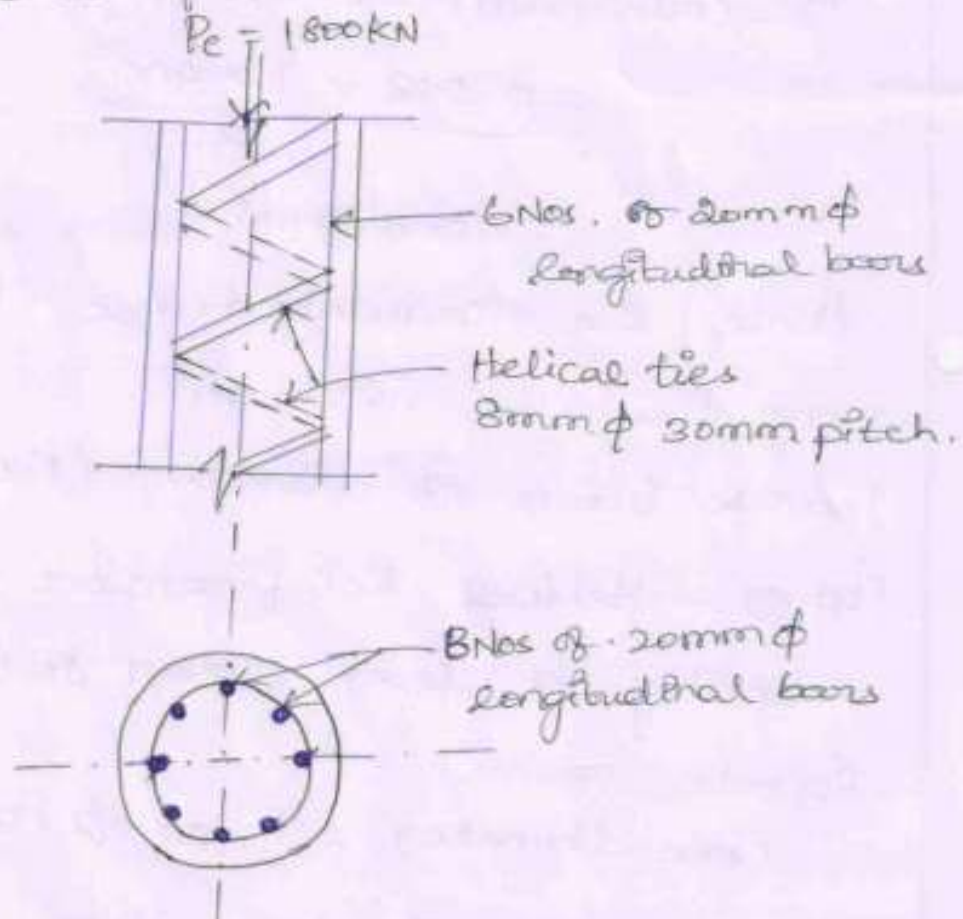 Pc = 1800KN
6Nos. of 20mm ϕ
longitudinal bars
Helical ties
8mm ϕ 30mm pitch.
8Nos of 20mm ϕ
longitudinal bars